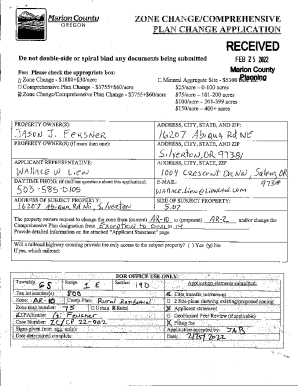 Marion County
OREGON
ZONE CHANGE/COMPREHENSIVE
PLAN CHANGE APPLICATION
RECEIVED
FEB 25 2022
Marion County
Planning
Do not double-side or spiral bind any documents being submitted
Fee: Please check the appropriate box:
Zone Change - $1880+$30/acre
Comprehensive Plan Change - $3755+$60/acre
Zone Change/Comprehensive Plan Change - $3755+$60/acre
Mineral Aggregate Site - $5300
$25/acre - 0-100 acres
$75/acre - 101-200 acres
$100/acre - 201-399 acres
$150/acre - 400+ acres
PROPERTY OWNER(S):
JASON J. FEKSNER
ADDRESS, CITY, STATE, AND ZIP:
16207 Abiqua Rd NE
PROPERTY OWNER(S) (if more than one):
ADDRESS, CITY, STATE, AND ZIP
Silverton, OR 97381
APPLICANT REPRESENTATIVE:
WALLACE W LIEN
ADDRESS, CITY, STATE, ZIP
1004 Crescent Dr NW, Salem, OR
DAYTIME PHONE (if staff has questions about this application):
503-585-0105
E-MAIL:
wallace.lien@lienlaw.com
ADDRESS OF SUBJECT PROPERTY:
16207 Abiqua Rd NE, Silverton
SIZE OF SUBJECT PROPERTY:
5.07
The property owners request to change the zone from (current) AR-10 to (proposed) AR-2 and/or change the
Comprehensive Plan designation from Exception to Goal 14
Provide detailed information on the attached "Applicant Statement" page.
Will a railroad highway crossing provide the only access to the subject property? ( ) Yes ( ) No
If yes, which railroad:
FOR OFFICE USE ONLY:
Township 6S Range 1E Section 19D
Application elements submitted:
Tax lot number(s) 800
Zone: AR-10 Comp. Plan: Rural Residential
Zone map number: 75 Urban Rural
Applicant statement
Filing fee
Case Number: ZC/CP 22-002
Application accepted by: JAB
Date determined complete:
Date: 2/25/2022